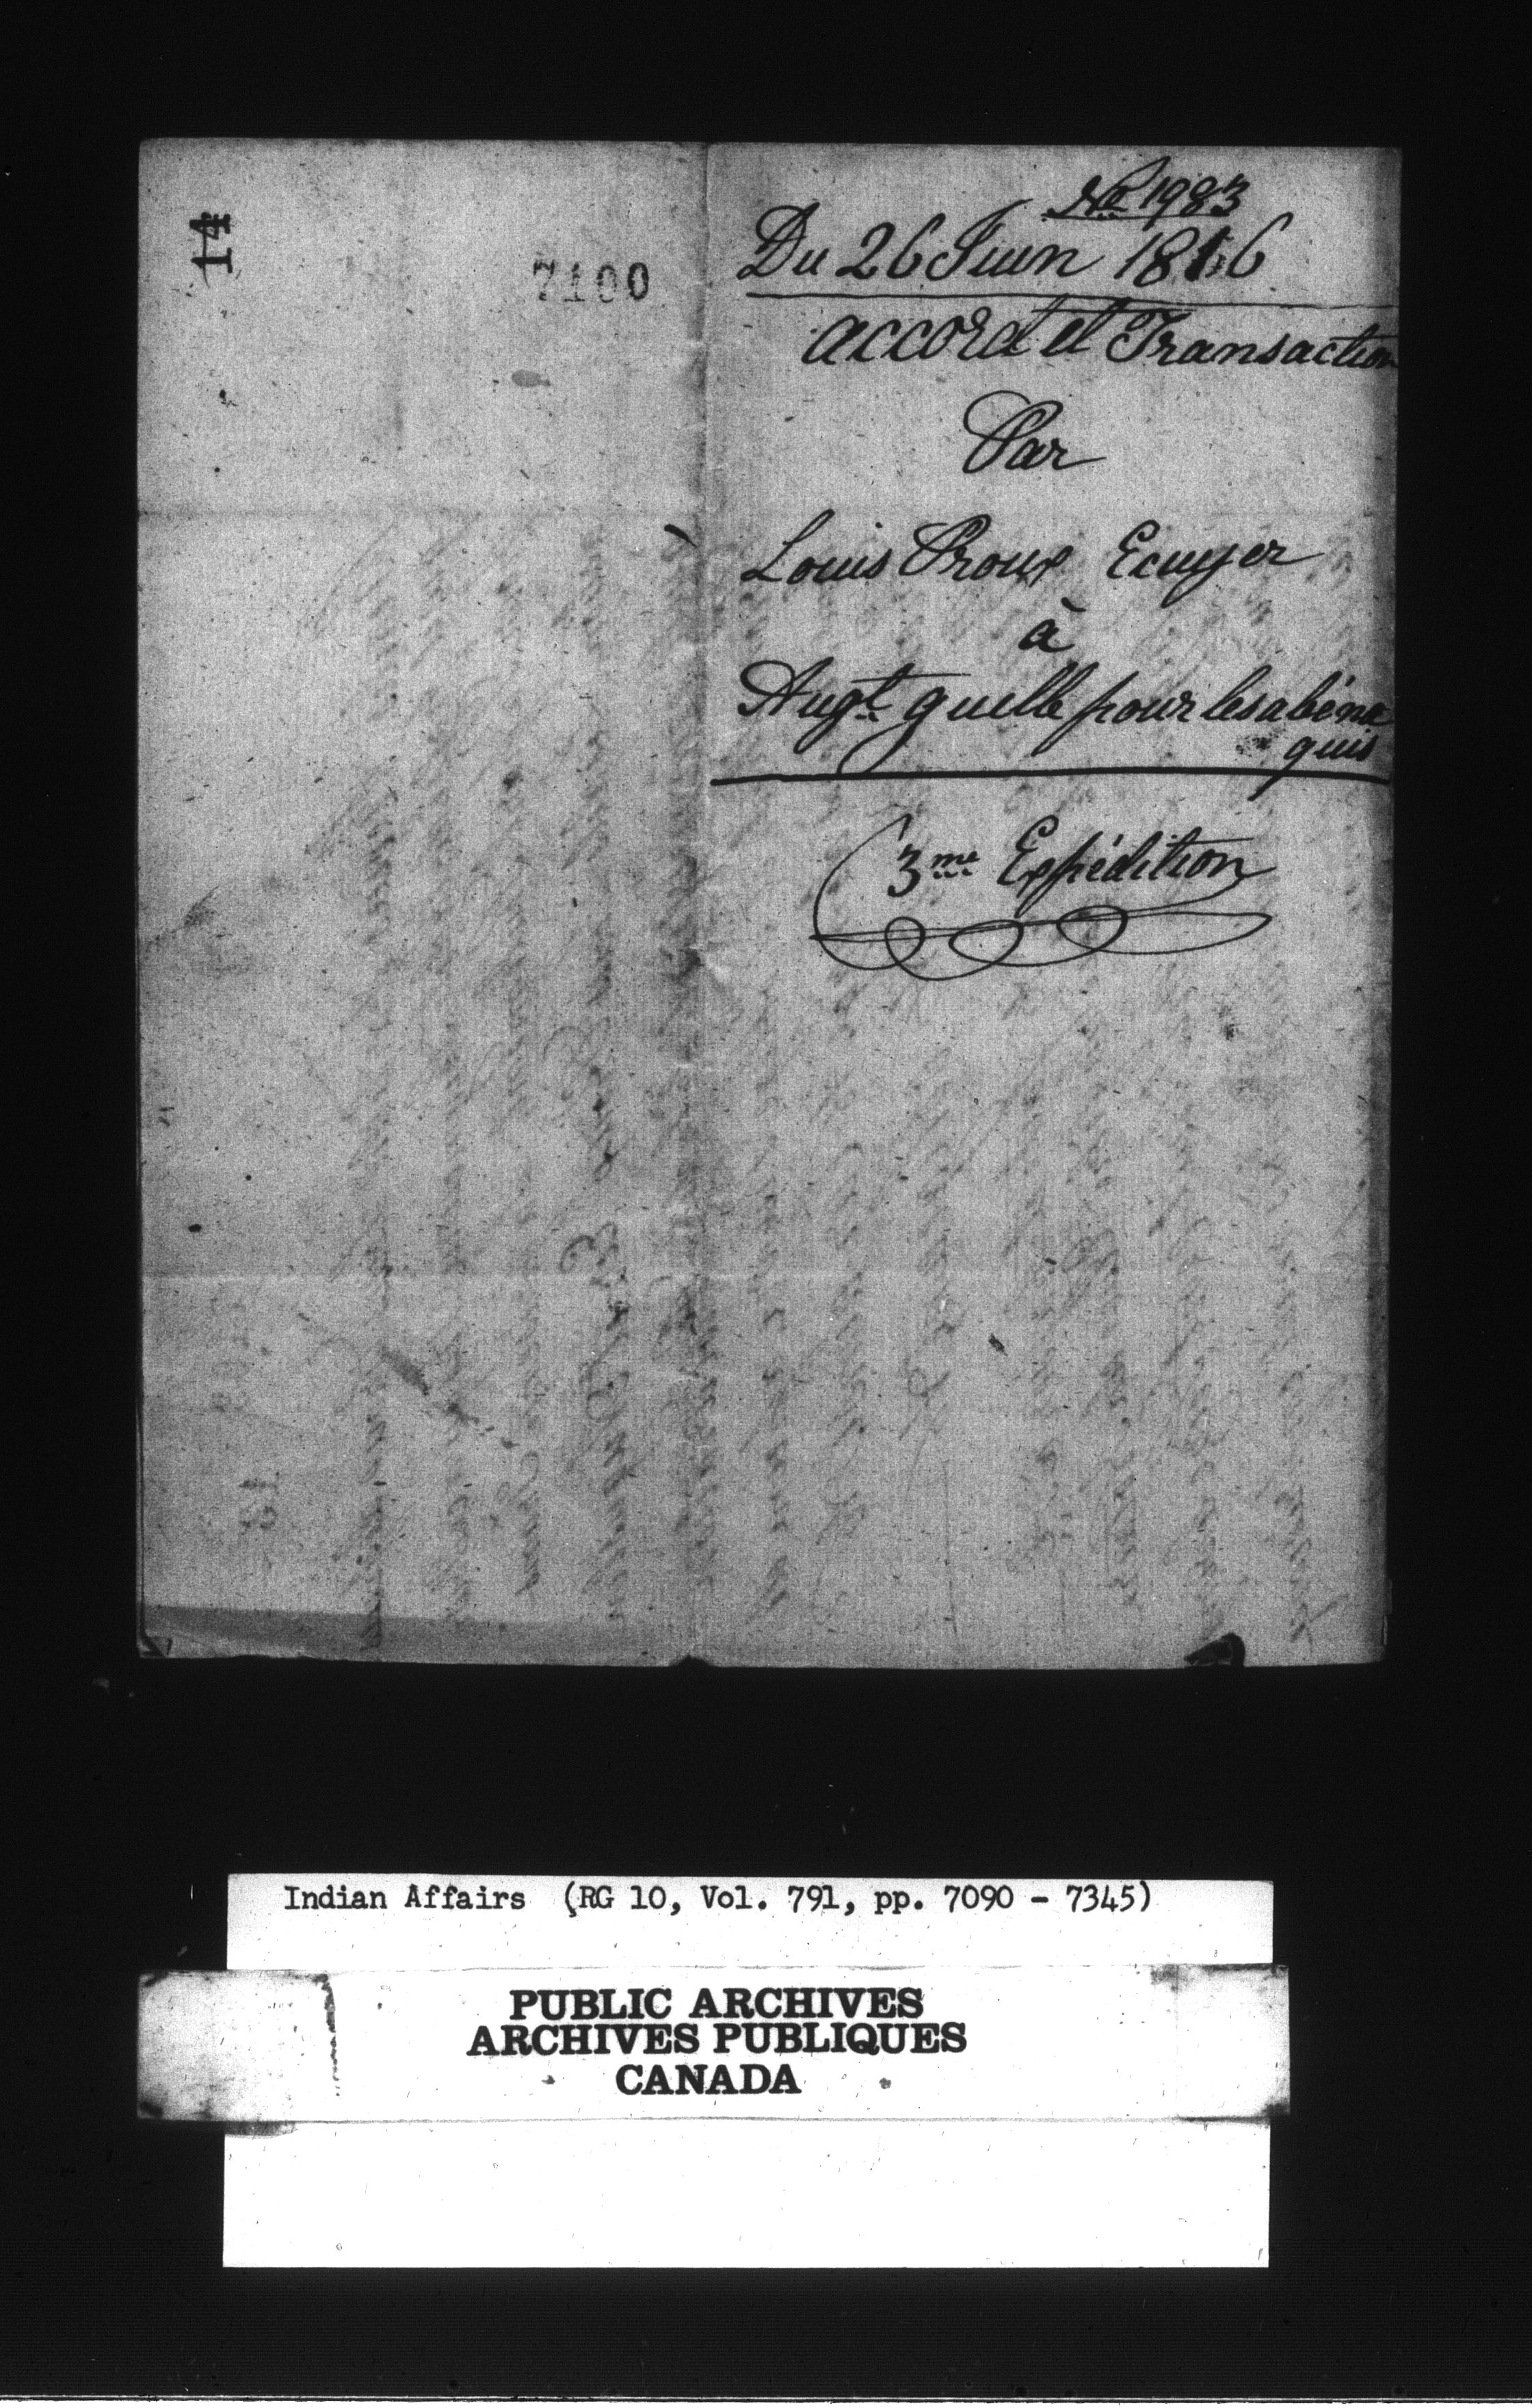 14
7100
No 1983
Du 26 Juin 1816
accord et Transaction
Par
Louis Proux Ecuyer
à
Augt. guille pour les abéna
quis
3me Expédition
Indian Affairs (RG 10, Vol. 791, pp. 7090 - 7345)
PUBLIC ARCHIVES
ARCHIVES PUBLIQUES
CANADA